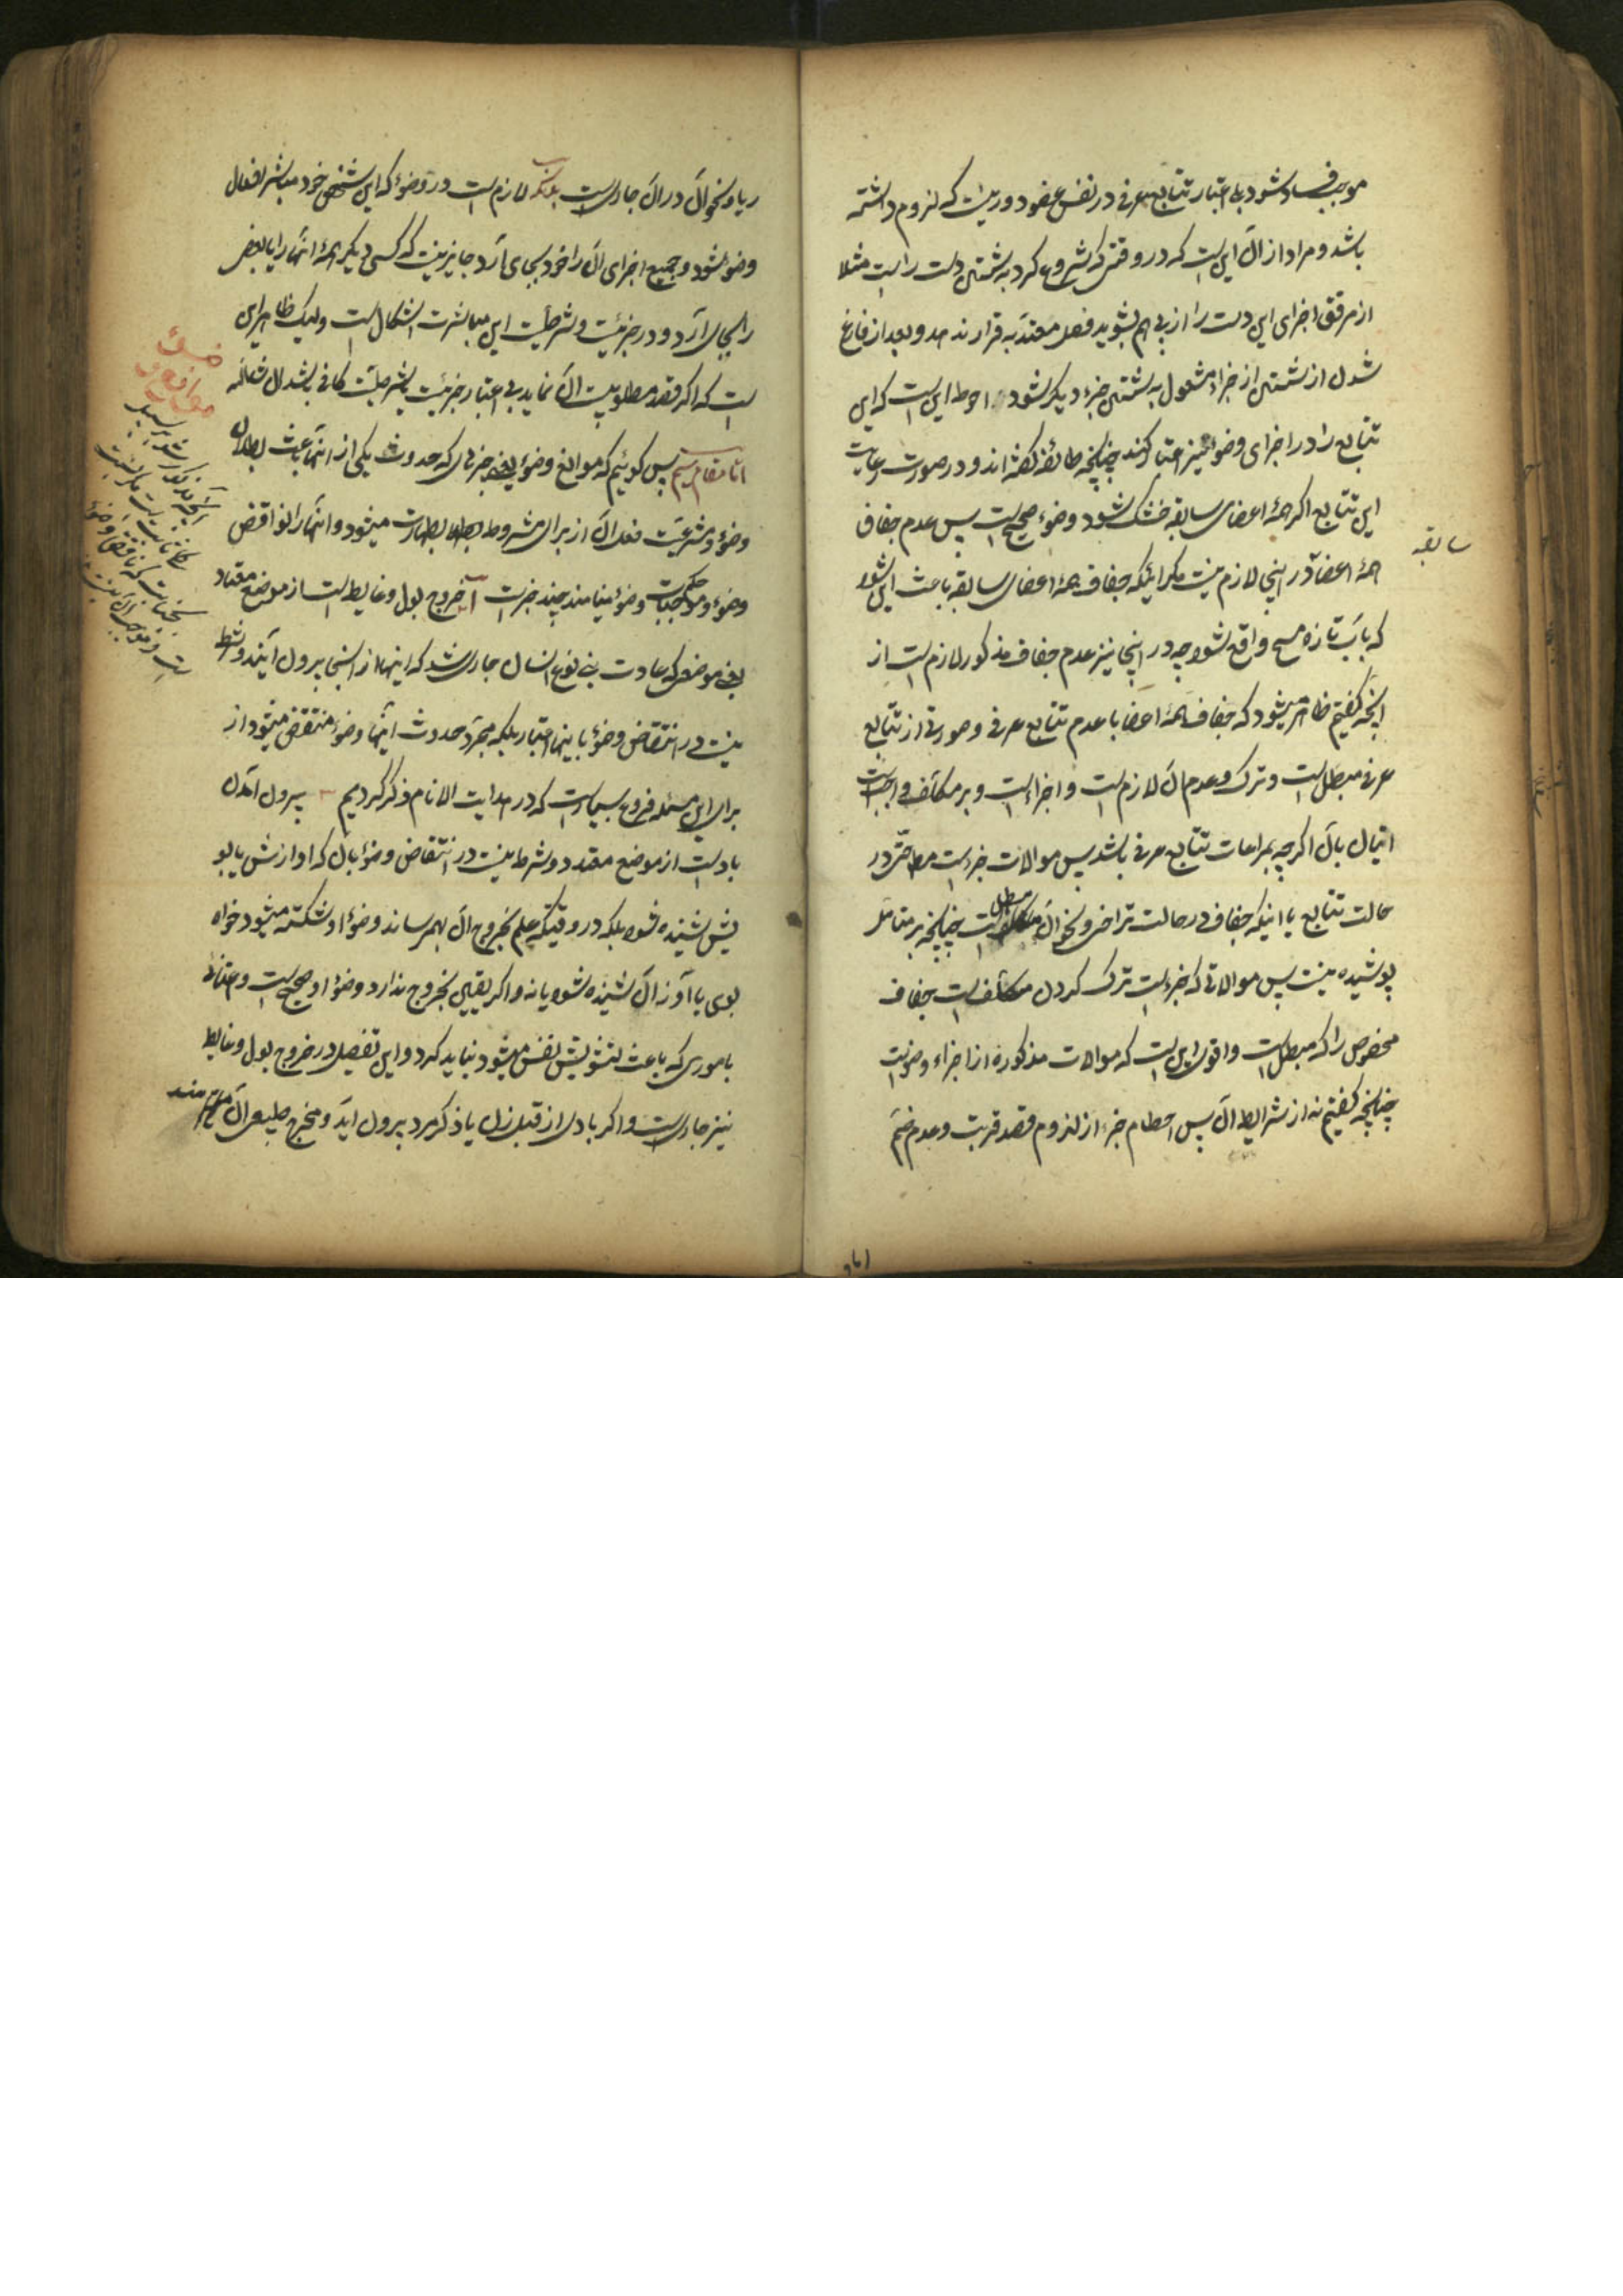 موجب فساد شود بلی اعتبار تتابع عرفی در نفس عضو دور نیست که لزوم داشته
باشد و مراد از آن این است که در وقتی که شروع کرد به شستن دست راست مثلا
از مرفق اجزای این دست را از پی هم بشوید فصل معتد به قرار ندهد و بعد از فارغ
شدن از شستن از جزء مشغول به شستن جزء دیگر شود و احوط این است که این
تتابع را در اجزای وضو نیز اعتبار کنند چنانچه طائفه گفته‌اند و در صورت رعایت
این تتابع اگر همهٔ اعضای سابقه خشک شود وضوء صحیح است پس عدم جفاف
سابقه
همهٔ اعضا در اینجا لازم نیست مگر اینکه جفاف همهٔ اعضای سابقه باعث این شود
که بآب تازه مسح واقع شود چه در اینجا نیز عدم جفاف مذکور لازم است از
آنچه گفتیم ظاهر میشود که جفاف همهٔ اعضا با عدم تتابع عرفی و صورتی از تتابع
عرفی مبطل است و ترک و عدم آن لازم است و اجزاء است و بر مکلف واجب است
اتیان بآن اگر چه بمراعات تتابع عرفی باشد پس موالات جزء است مطلقا در
حالت تتابع با اینکه جفاف در حالت تراخی و نحو آن مبطل است چنانچه بر متامل
پوشیده نیست پس موالاتی که جزء است ترک کردن مکلف است جفاف
مخصوص را که مبطل است و اقوی این است که موالات مذکوره از اجزاء وضو است
چنانچه گفتیم نه از شرایط آن پس احکام جزء از لزوم قصد قربت و عدم ضم
ریا و نحو آن در آن جاری است بلکه لازم است در وضوء که این شخص خود مباشر افعال
وضو شود و جمیع اجزای آن را خود بجای آرد جایز نیست که کسی دیگر همهٔ آنها را یا بعض
را بجای آرد و در جزئیت و شرطیت این مباشرت اشکال است ولیک ظاهر این
است که اگر قصد مطلوبیت آن نماید بی اعتبار جزئیت یا شرطیت کافی باشد ان شاء الله
اما مقام سیم پس گوئیم که موانع وضوء یعنی چیزهای که حدوث یکی از آنها باعث بطلان
وضوء و مشروعیت فعل آن از برای مشروط بطهارت میشود و آنها را نواقض
وضوء و موجبات وضوء مینامند چند چیز است آ خروج بول و غایط است از موضع معتاد
یعنی موضعی که عادت بنی نوع انسان جاری شد که اینها از آنجا بیرون آیند و شرط
نیست در انتقاض وضوء باینها اعتیاد بلکه مجرد حدوث اینها وضوء منتقض میشود از
برای این مسئله فروع بسیار است که در هدایت الانام ذکر کردیم بیرون آمدن
باد است از موضع معتاد و شرط نیست در انتقاض وضوء بآن که اوازش یا بو
یش شنیده شود بلکه در وقتیکه علم بخروج آن بهم رساند وضوء او شکسته میشود خواه
بوی یا آواز آن شنیده شود یا نه و اگر یقین بخروج ندارد وضوء او صحیح است و اعتنائی
باموری که باعث تشویش نفس میشود نباید کرد و این تفصیل در خروج بول و غایط
نیز جاریست و اگر بادی از قبل زن یا ذکر مرد بیرون آید و مخرج طبیعی آن